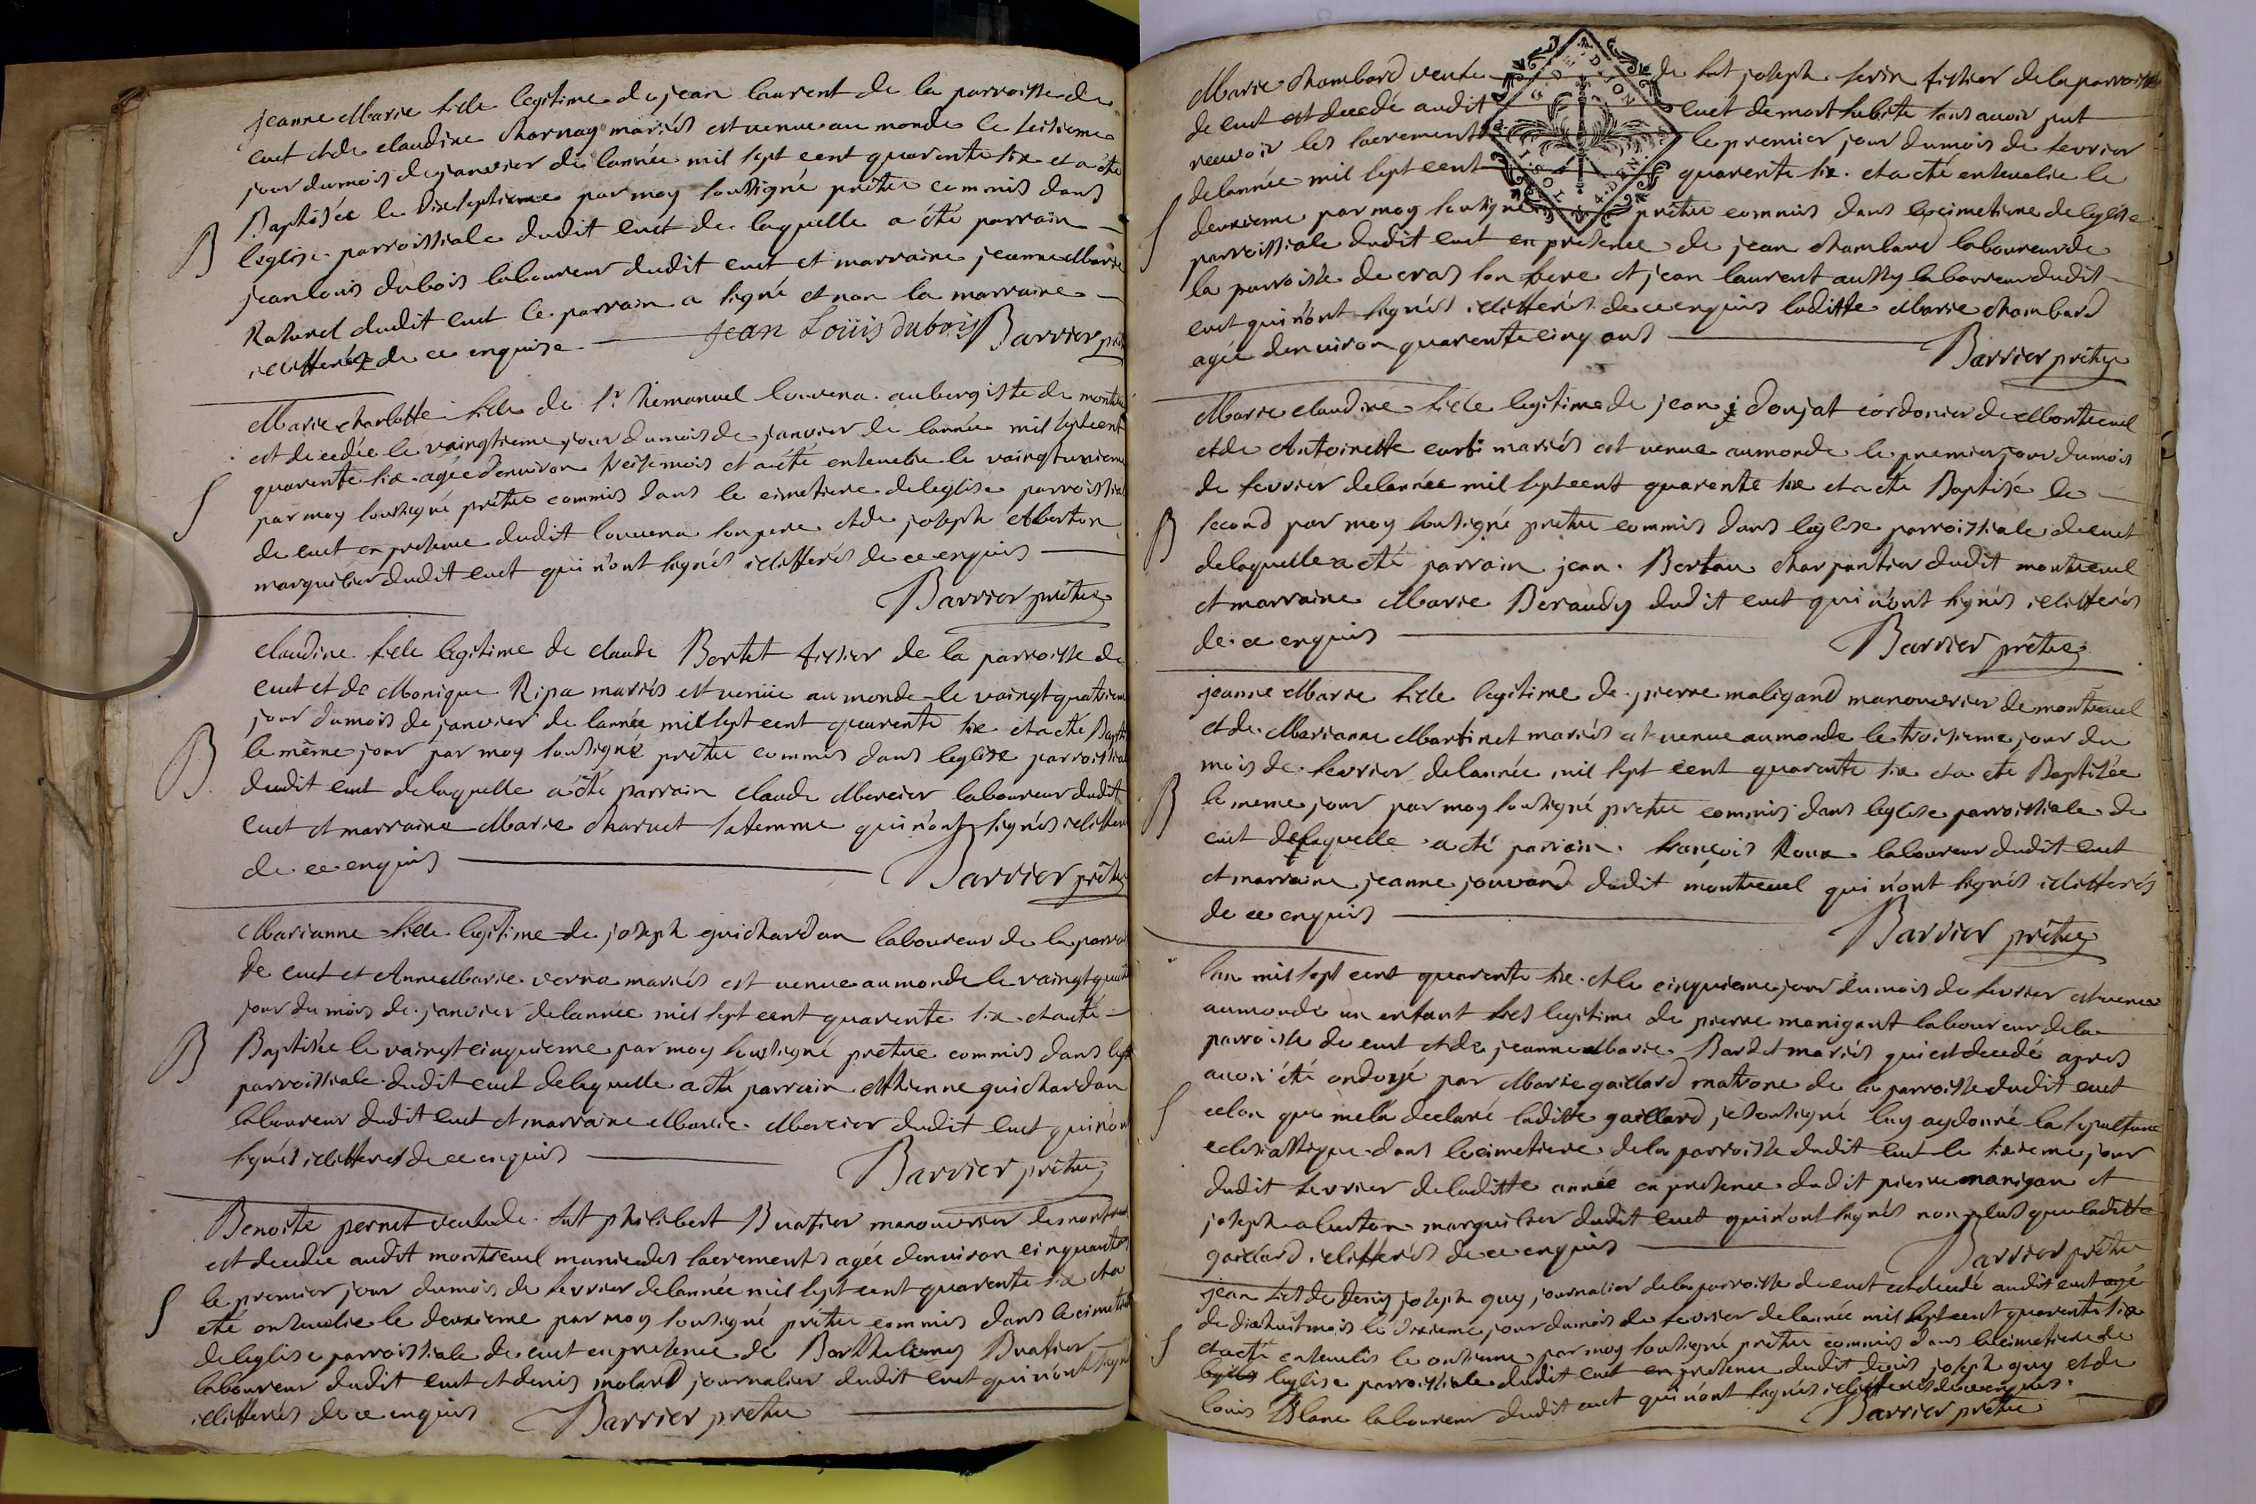 jeanne Marie fille legitime de jean laurent de la parroisse de
cuet et de claudine Charnay mariés est venue au monde le seisieme
jour du mois de janvier de lannée mil sept cent quarente six et a été
Baptisée le dixseptieme par moy soussigné prêtre commis dans
B
leglise parroissiale dudit cuet de laquelle a été parrain
jean louis dubois laboureur dudit cuet et marraine jeanne Marie
dudit cuet le parrain a signé et non la marraine
illitterée de ce enquise jean Loüis dubois Barrier
Marie charlotte fille de Sr aubergiste de
est decedée le vaingtieme jour du mois de janvier de lannée mil sept cent
quarente six agée denviron treise mois et a été ensevelie le vaingtunieme
S
par moy soussigné prêtre commis dans le cimetiere de leglise
de cuet en presence dudit son pere et de joseph
marguilier dudit cuet qui n'ont signés illitterés de ce enquis
Barrier prêtre
claudine fille legitime de claude Bertet de la parroisse de
cuet et de Monique Ripa mariés est venüe au monde le vaingtquatrieme
jour du mois de janvier de lannée mil sept cent quarente six et a été
le même jour par moy soussigné prêtre commis dans leglise
B
dudit cuet de laquelle a été parrain claude Mercier laboureur dudit
cuet et marraine Marie charvet sa femme qui n'ont signés
de ce enquis Barrier prêtre
Marianne fille legitime de joseph guichardon laboureur de la
de cuet et Anne Marie verna mariés est venue au monde le
jour du mois de janvier de lannée mil sept cent quarente six et a été
B
Baptisée le vaingtcinquieme par moy soussigné prêtre commis dans
parroissiale dudit cuet de laquelle a été parrain guichardon
laboureur dudit cuet et marraine Marie Mercier dudit cuet
signés illitterés de ce enquis
Barrier prêtre
Benoite pernet veuve de fut philibert Buatier manouvrier de
est decedée audit montreuel munie des sacrements agée denviron cinquante
S
le premier jour du mois de fevrier de lannée mil sept cent quarente six et a
été ensevelie le deuxieme par moy soussigné prêtre commis dans le
de leglise parroissiale de cuet en presence de Barthelemy Buatier
laboureur dudit cuet et denis molard journalier dudit cuet qui n'ont
illitterés de ce enquis Barrier prêtre
Marie Chambard veuve de fut joseph tissier de la parroisse
de cuet est decedé audit cuet de mort subite sans avoir put
recevoir les sacrements le premier jour du mois de fevrier
de lannée mil sept cent quarente six et a été ensevelie le
S
deuxieme par moy soussigné prêtre commis dans le cimetiere de leglise
parroissiale dudit cuet en presence de jean chambard laboureur de
la parroisse de cras son frere et jean laurent aussy laboureur dudit
cuet qui n'ont signés illitterés de ce enquis laditte Marie chambard
agée denviron quarente cinq ans
Barrier prêtre
Marie claudine fille legitime de jean donjat cordonier de Montreuel
et de Antoinette mariés est venue au monde le premier jour du mois
de fevrier de lannée mil sept cent quarente six et a été Baptisé le
B
second par moy soussigné prêtre commis dans leglise parroissiale de cuet
de laquelle a été parrain jean charpantier dudit montreuel
et marraine Marie Beraudy dudit cuet qui n'ont signés illitterés
de ce enquis Barrier prêtre
jeanne Marie fille legitime de pierre maligand manouvrier de montreuel
et de Marianne Martinet mariés est venue au monde le troisieme jour du
mois de fevrier de lannée mil sept cent quarente six et a été Baptisée
B
le meme jour par moy soussigné prêtre commis dans leglise parroissiale de
cuet de laquelle a été parrain françois Roux laboureur dudit cuet
et marraine jeanne jouvand dudit montreuel qui n'ont signés illitterés
de ce enquis
Barrier prêtre
lan mil sept cent quarente six et le cinquieme jour du mois de fevrier est venu
au monde un enfant fils legitime de pierre manigant laboureur de la
parroisse de cuet et de jeanne Marie Bardet mariés qui est decedé apres
avoir été ondoyé par Marie gaillard matrone de la parroisse dudit cuet
S
celon que me la declaré laditte gaillard je soussigné luy ay donné la sepulture
eclesiastique dans le cimetiere de la parroisse dudit cuet le sixieme jour
dudit fevrier de laditte année en presence dudit pierre manigan et
joseph marguilier dudit cuet qui n'ont signés non plus que laditte
gaillard illitterés de ce enquis Barrier prêtre
jean fils de denis joseph guy journalier de la parroisse de cuet est decedé audit cuet agé
de dixhuit mois le dixieme jour du mois de fevrier de lannée mil sept cent quarente six
S
et a été ensevelis le onsieme par moy soussigné prêtre commis dans le cimetiere de
leglise parroissiale dudit cuet en presence dudit denis joseph guy et de
louis Blanc laboureur dudit cuet qui n'ont signés illitterés de ce enquis
Barrier prêtre